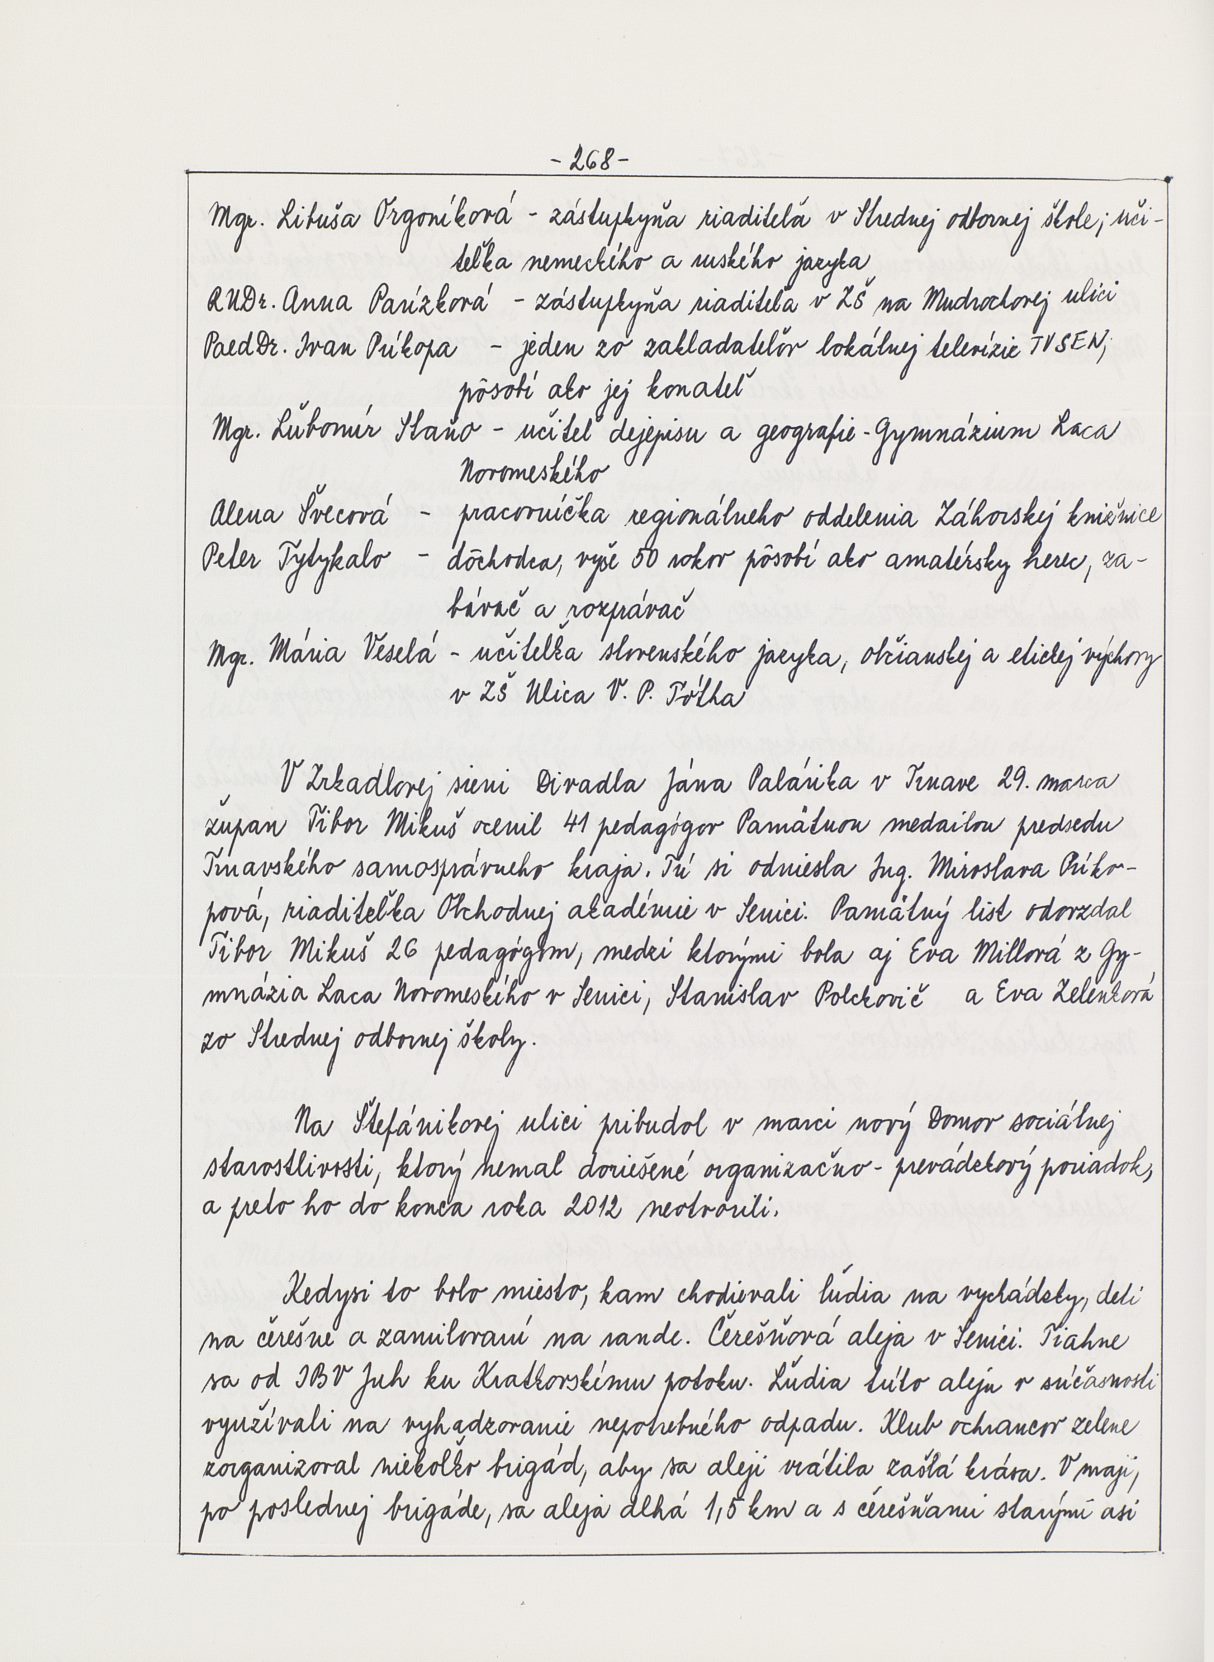 - 268 -
Mgr. Libuša Orgoníková - zástupkyňa riaditeľa v Strednej odbornej škole; uči-
teľka nemeckého a ruského jazyka
RNDr. Anna Parízková - zástupkyňa riaditeľa v ZŠ na Mudrochovej ulici
PaedDr. Ivan Príkopa - jeden zo zakladateľov lokálnej televízie TVSEN,
pôsobí ako jej konateľ
Mgr. Ľubomír Staňo - učiteľ dejepisu a geografie - Gymnázium Laca
Novomeského
Alena Švecová - pracovníčka regionálneho oddelenia Záhorskej knižnice
Peter Tytykalo - dôchodca, vyše 50 rokov pôsobí ako amatérsky herec, za-
bávač a rozprávač
Mgr. Mária Veselá - učiteľka slovenského jazyka, občianskej a etickej výchovy
v ZŠ Ulica V. P. Tótha
V Zrkadlovej sieni Divadla Jána Palárika v Trnave 29. marca
župan Tibor Mikuš ocenil 41 pedagógov Pamätnou medailou predsedu
Trnavského samosprávneho kraja. Tú si odniesla Ing. Miroslava Príko-
pová, riaditeľka Obchodnej akadémie v Senici. Pamätný list odovzdal
Tibor Mikuš 26 pedagógom, medzi ktorými bola aj Eva Millová z Gy-
mnázia Laca Novomeského v Senici, Stanislav Polckovič a Eva Zelenková
zo Strednej odbornej školy.
Na Štefánikovej ulici pribudol v marci nový Domov sociálnej
starostlivosti, ktorý nemal doriešené organizačno - prevádzkový poriadok,
a preto ho do konca roka 2012 neotvorili.
Kedysi to bolo miesto, kam chodievali ľudia na vychádzky, deti
na čerešne a zamilovaní na rande. Čerešňová aleja v Senici. Tiahne
sa od IBV Juh ku Kratkovskému potoku. Ľudia túto aleju v súčasnosti
využívali na vyhadzovanie nepotrebného odpadu. Klub ochrancov zelene
zorganizoval niekoľko brigád, aby sa aleji vrátila zašlá krása. V máji,
po poslednej brigáde, sa aleja dlhá 1,5 km a s čerešňami starými asi